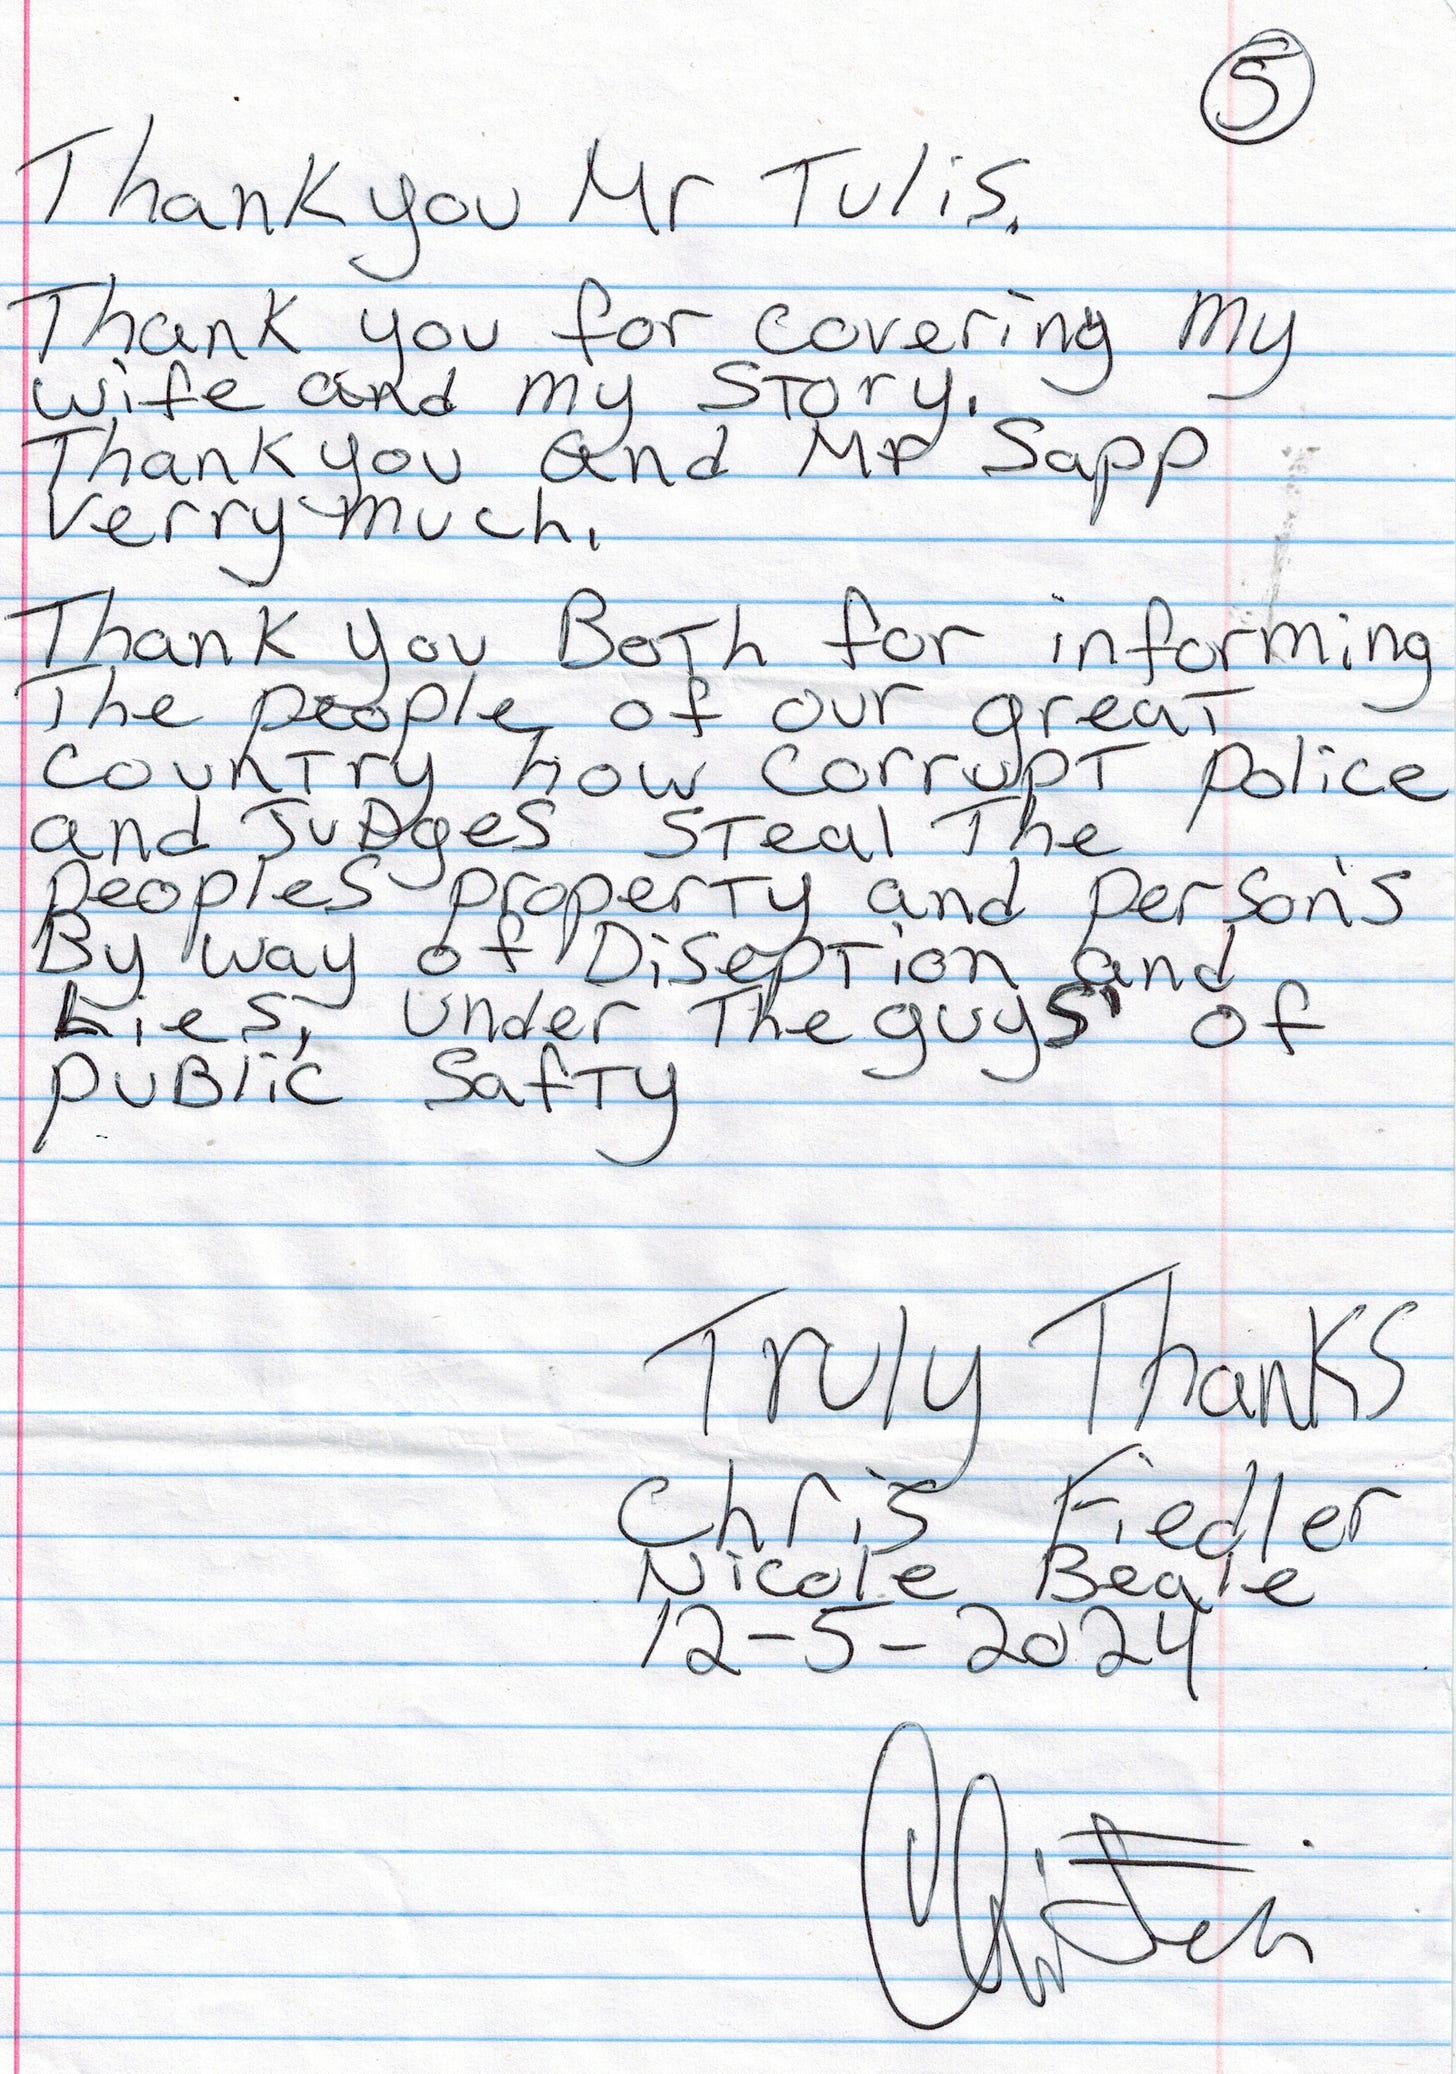 5
Thank you Mr Tulis.
Thank you for covering my
wife and my story.
Thank you and Mr Sapp
verry much.
Thank you Both for informing
The people of our great
country how corrupt police
and JuDges steal The
peoples property and person's
By way of Diseption and
Lies, under The guys' of
puBlic safty
Truly Thanks
Chris Fiedler
Nicole Beale
12-5-2024